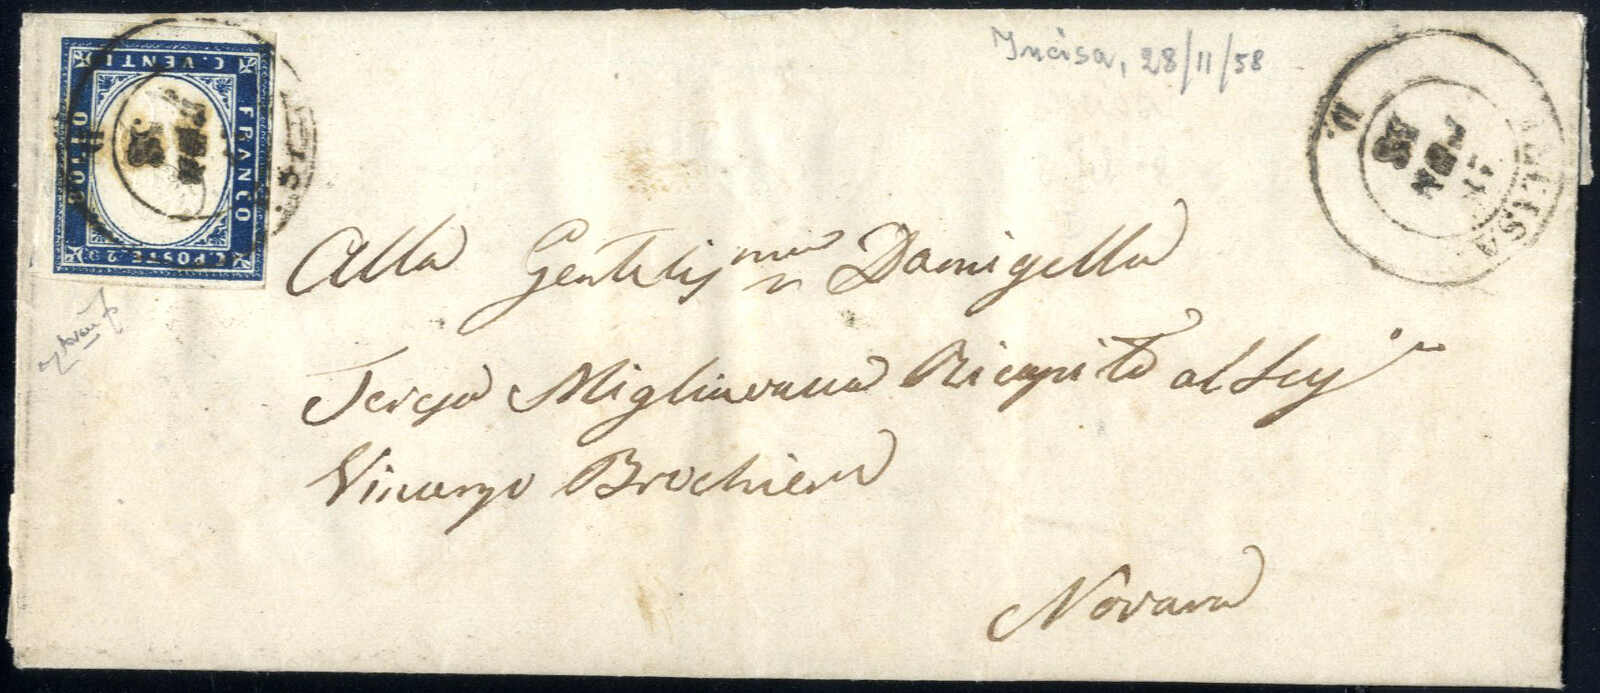 Incisa, 28/11/58
C. VENTI
FRANCO
BOLLO
C. POSTE 20
INCISA
Alla Gentilisma Damigella
Teresa Migliavacca Ricapito al Sigr
Vincenzo Brochieri
Novara